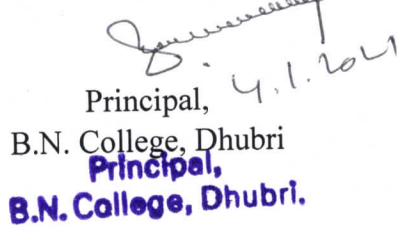 4.1.2021
Principal,
B.N. College, Dhubri
Principal,
B.N. College, Dhubri.